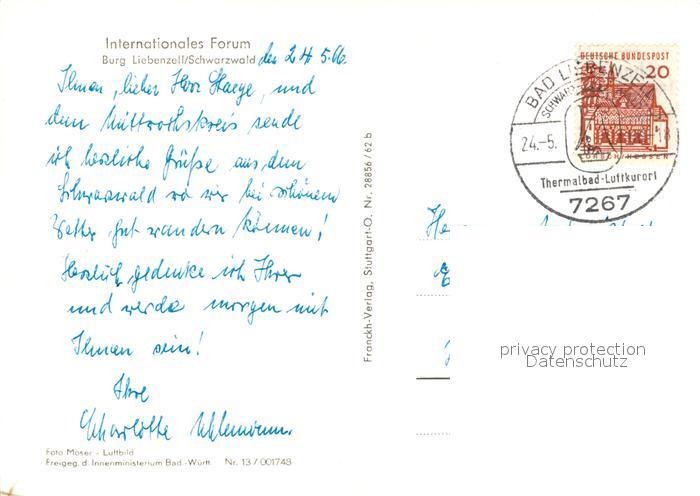 Internationales Forum
Burg Liebenzell/Schwarzwald
den 24 5.66
Ihnen, lieber Herr Staege, und
dem Mittwochskreis sende
ich herzliche Grüße aus dem
Schwarzwald wo wir bei schönem
Wetter gut wandern können!
Herzlich gedenke ich Ihrer
und werde morgen mit
Ihnen sein!
Ihre
Charlotte Uhlemann
Foto Moser - Luftbild
Freigeg. d. Innenministerium Bad.-Württ. Nr. 13/001748
Franckh-Verlag, Stuttgart-O. Nr. 28856/62 b
DEUTSCHE BUNDESPOST
20
LORSCH/HESSEN
BAD LIEBENZELL
24.-5.
Thermalbad-Luftkurort
7267
privacy protection
Datenschutz